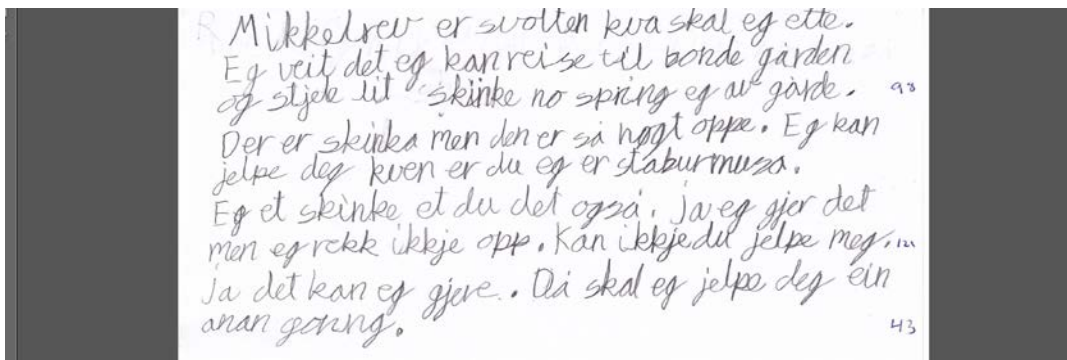 Mikkelrev er svolten kva skal eg ette.
Eg veit det eg kan reise til bonde gården
og stjele lit skinke no spring eg av gårde. 98
Der er skinka men den er så høgt oppe. Eg kan
jelpe deg kven er du eg er stabursmusa.
Eg et skinke et du det også. ja eg gjer det
men eg rekk ikkje opp. Kan ikkje du jelpe meg. 121
Ja det kan eg gjere. Då skal eg jelpe deg ein
anan gonng. 43